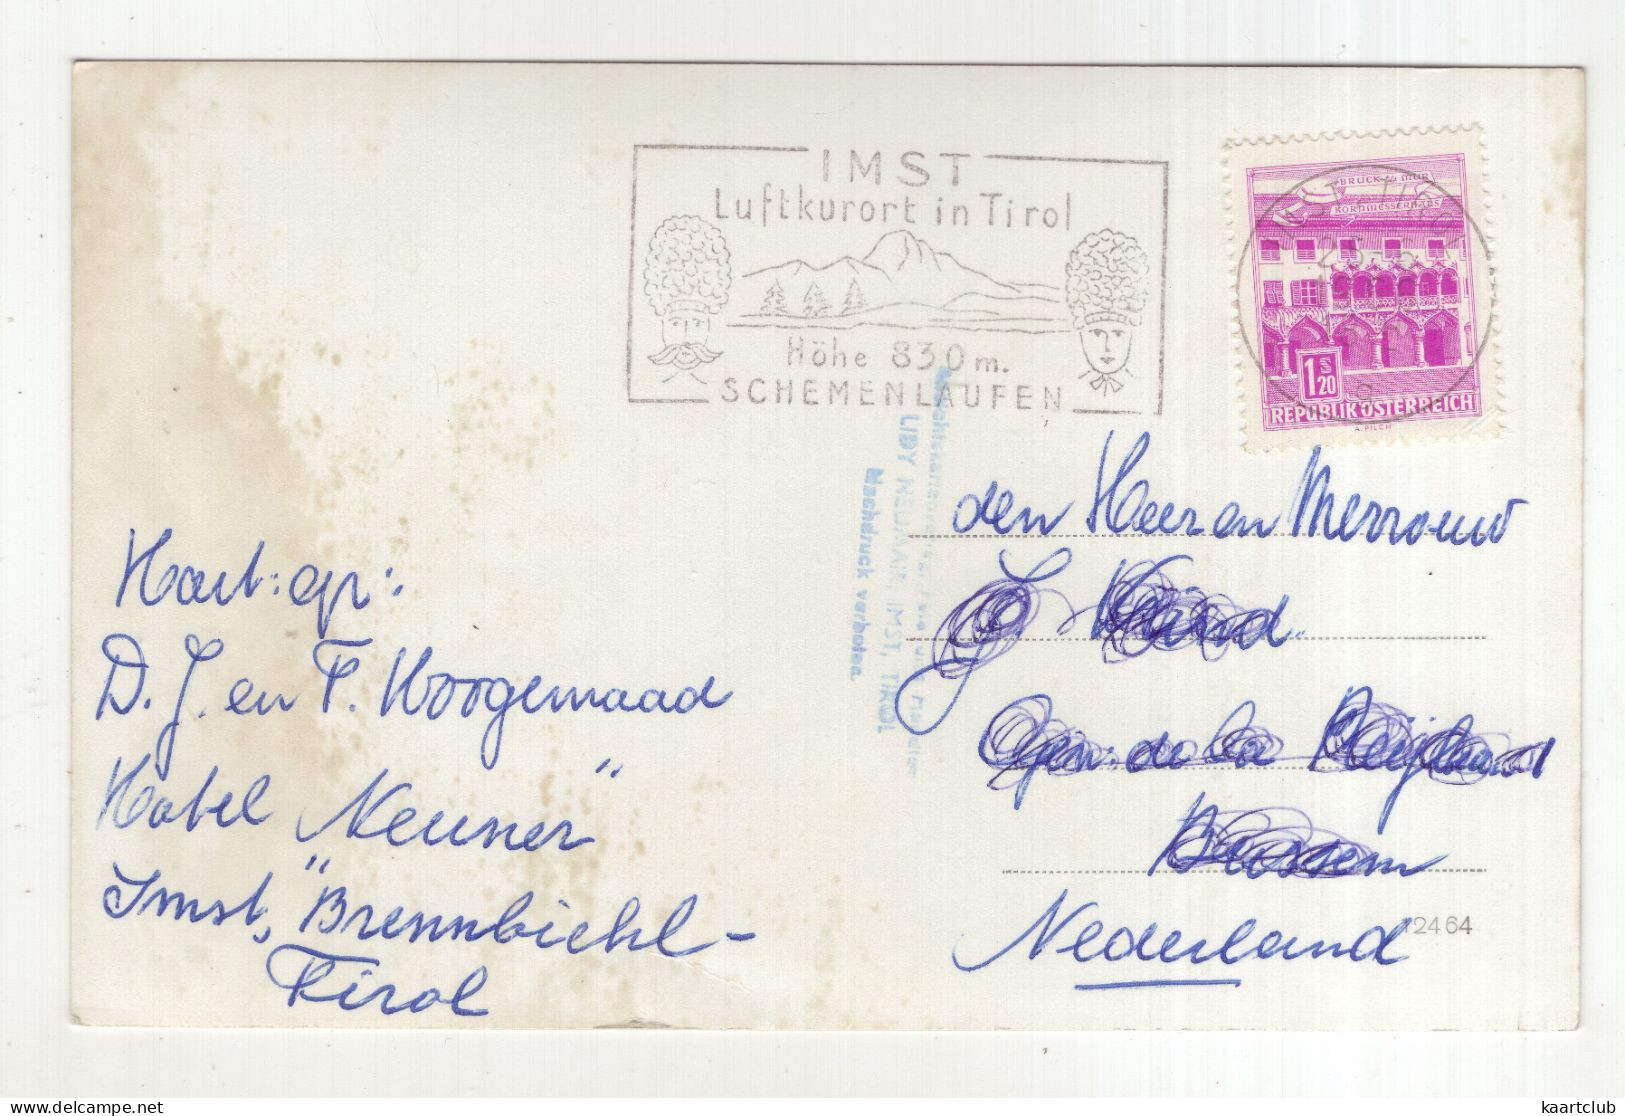 IMST
Luftkurort in Tirol
Höhe 830 m.
SCHEMENLAUFEN
BRUCK a.d. MUR
KORNMESSERHAUS
IMST, TIROL
1 S 20
REPUBLIK ÖSTERREICH
A. PILCH
LIDY NEUNER IMST, TIROL
Nachdruck verboten.
Kaart: op:
D. J. en F. Hoogemaad
Hotel "Neuner"
Imst, "Brennbichl -
Tirol
den Heer en Merrouw
J.
de la
Nederland
12464
kaartclub